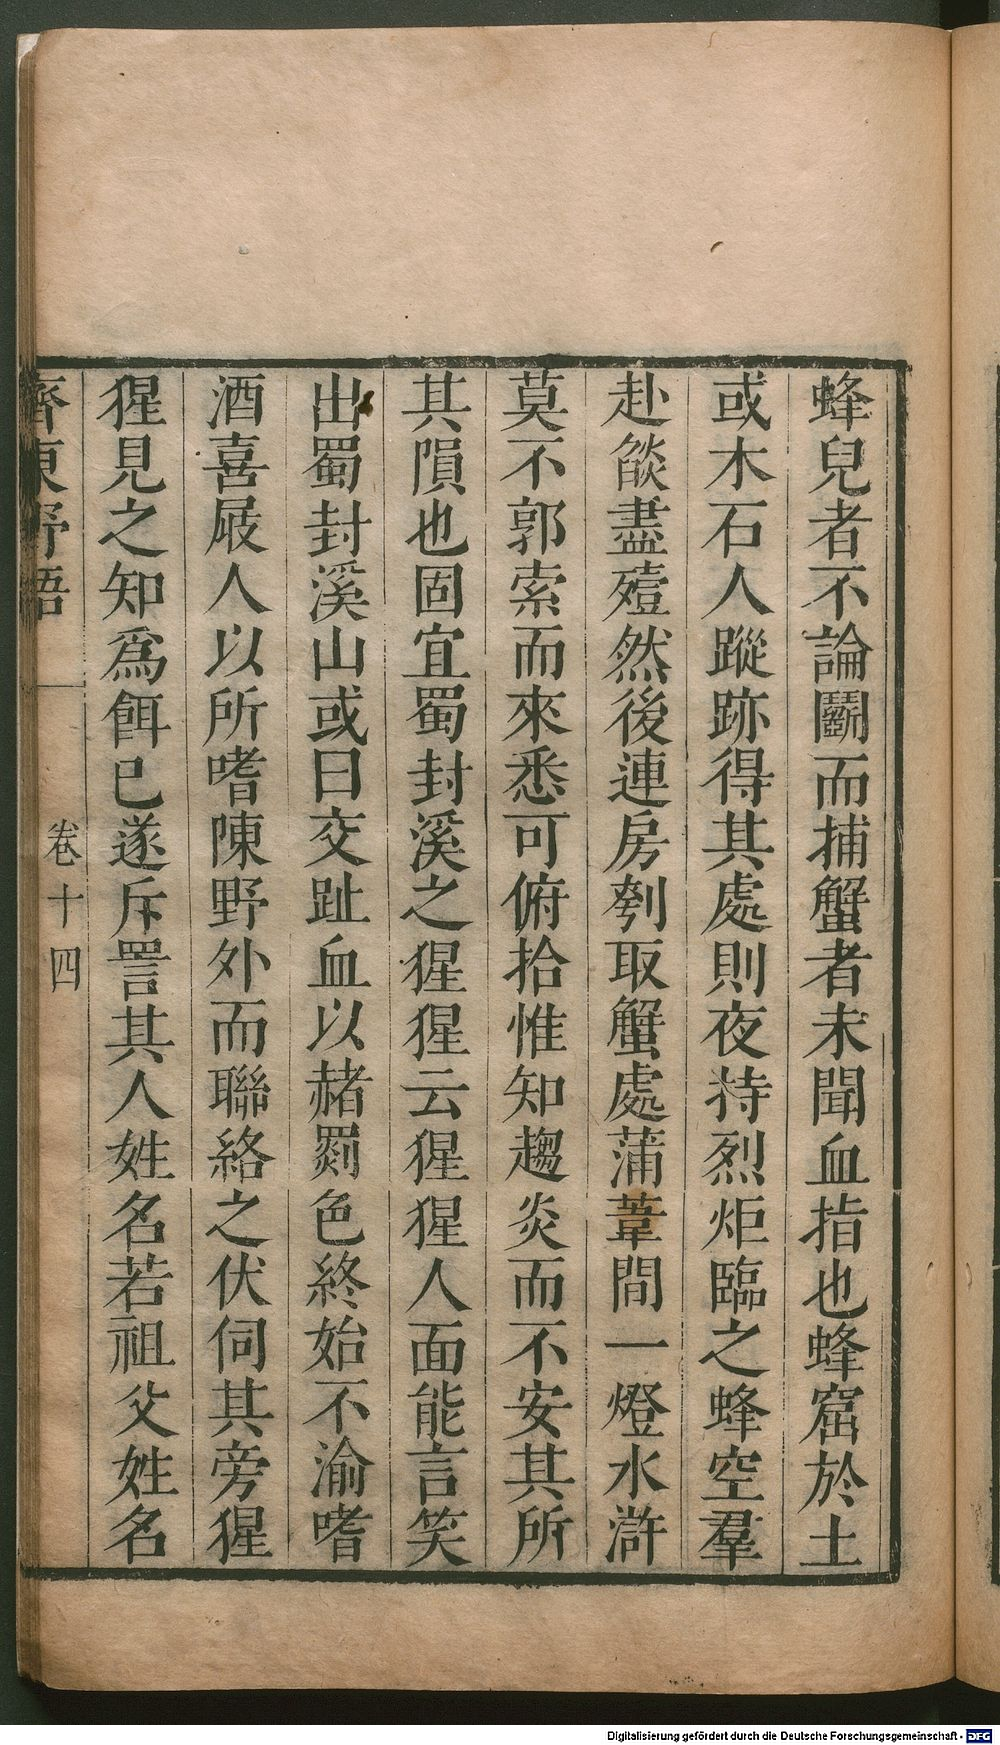 蜂兒者不論鬬而捕蟹者未聞血指也蜂窟於土
或木石人蹤跡得其處則夜持烈炬臨之蜂空羣
赴燄盡殪然後連房刳取蟹處蒲葦間一燈水滸
莫不郭索而來悉可俯拾惟知趨炎而不安其所
其隕也固宜蜀封溪之猩猩云猩猩人面能言笑
出蜀封溪山或曰交趾血以赭罽色終始不渝嗜
酒喜屐人以所嗜陳野外而聯絡之伏伺其旁猩
猩見之知爲餌已遂斥詈其人姓名若祖父姓名
齊東野語
卷十四
Digitalisierung gefördert durch die Deutsche Forschungsgemeinschaft - DFG